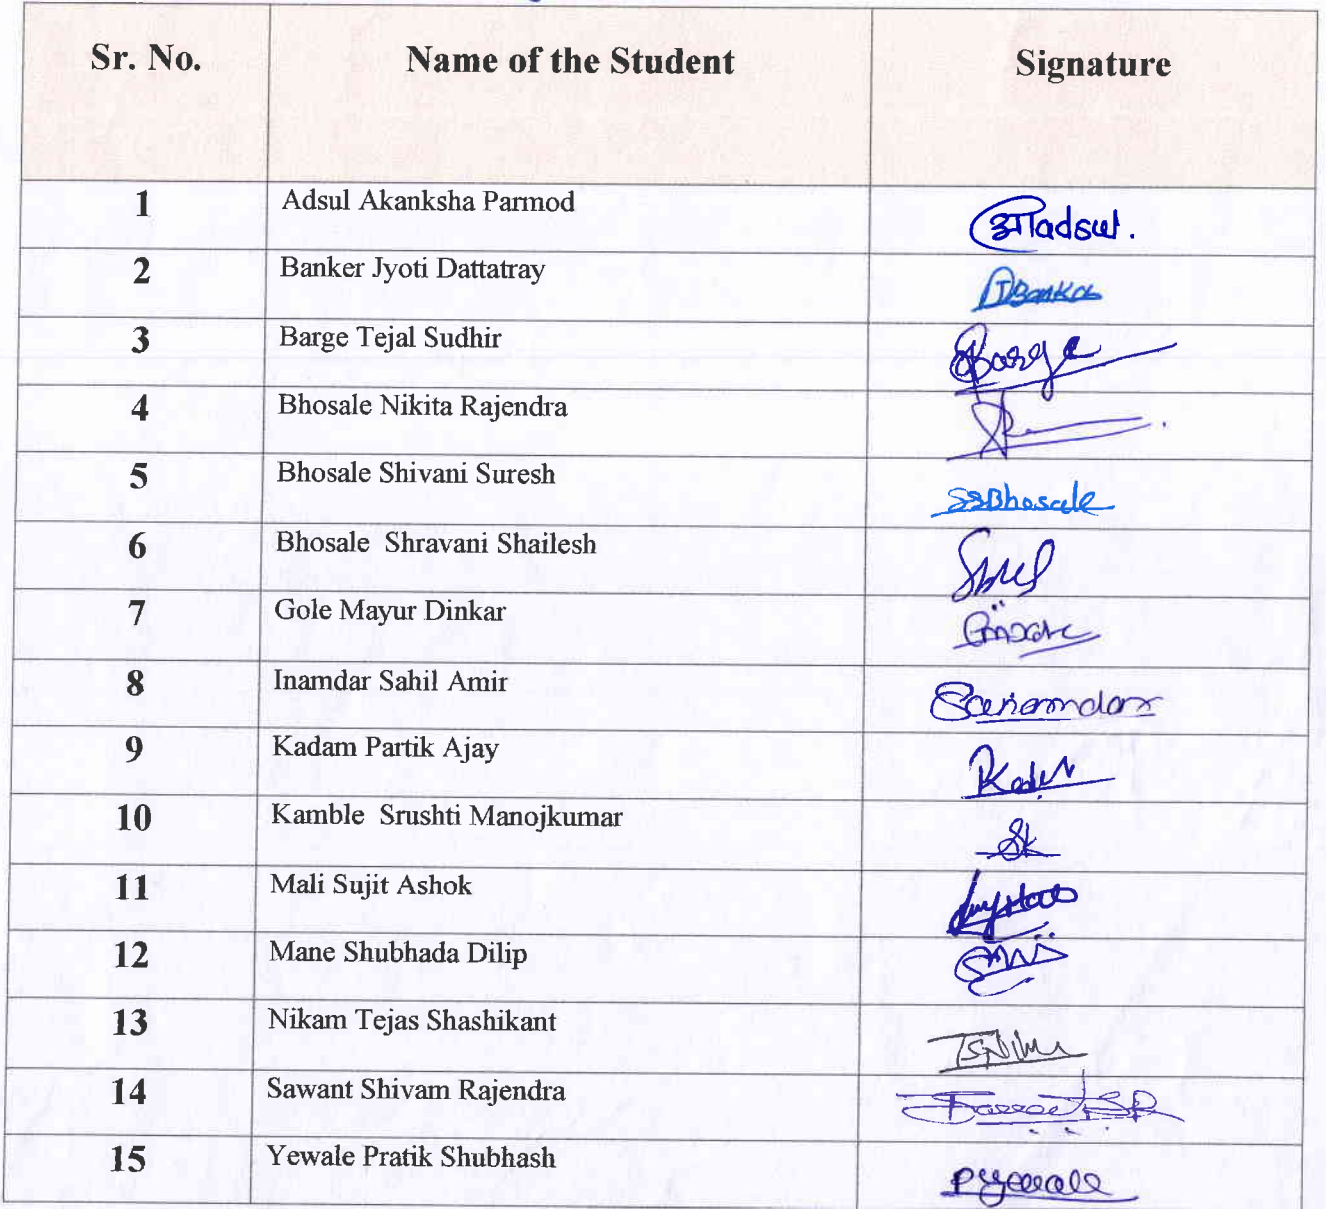 Sr. No. Name of the Student Signature
1 Adsul Akanksha Parmod आadsul.
2 Banker Jyoti Dattatray
3 Barge Tejal Sudhir Barge
4 Bhosale Nikita Rajendra
5 Bhosale Shivani Suresh SSBhosale
6 Bhosale Shravani Shailesh
7 Gole Mayur Dinkar
8 Inamdar Sahil Amir
9 Kadam Partik Ajay
10 Kamble Srushti Manojkumar Sk
11 Mali Sujit Ashok
12 Mane Shubhada Dilip
13 Nikam Tejas Shashikant
14 Sawant Shivam Rajendra
15 Yewale Pratik Shubhash pyewale